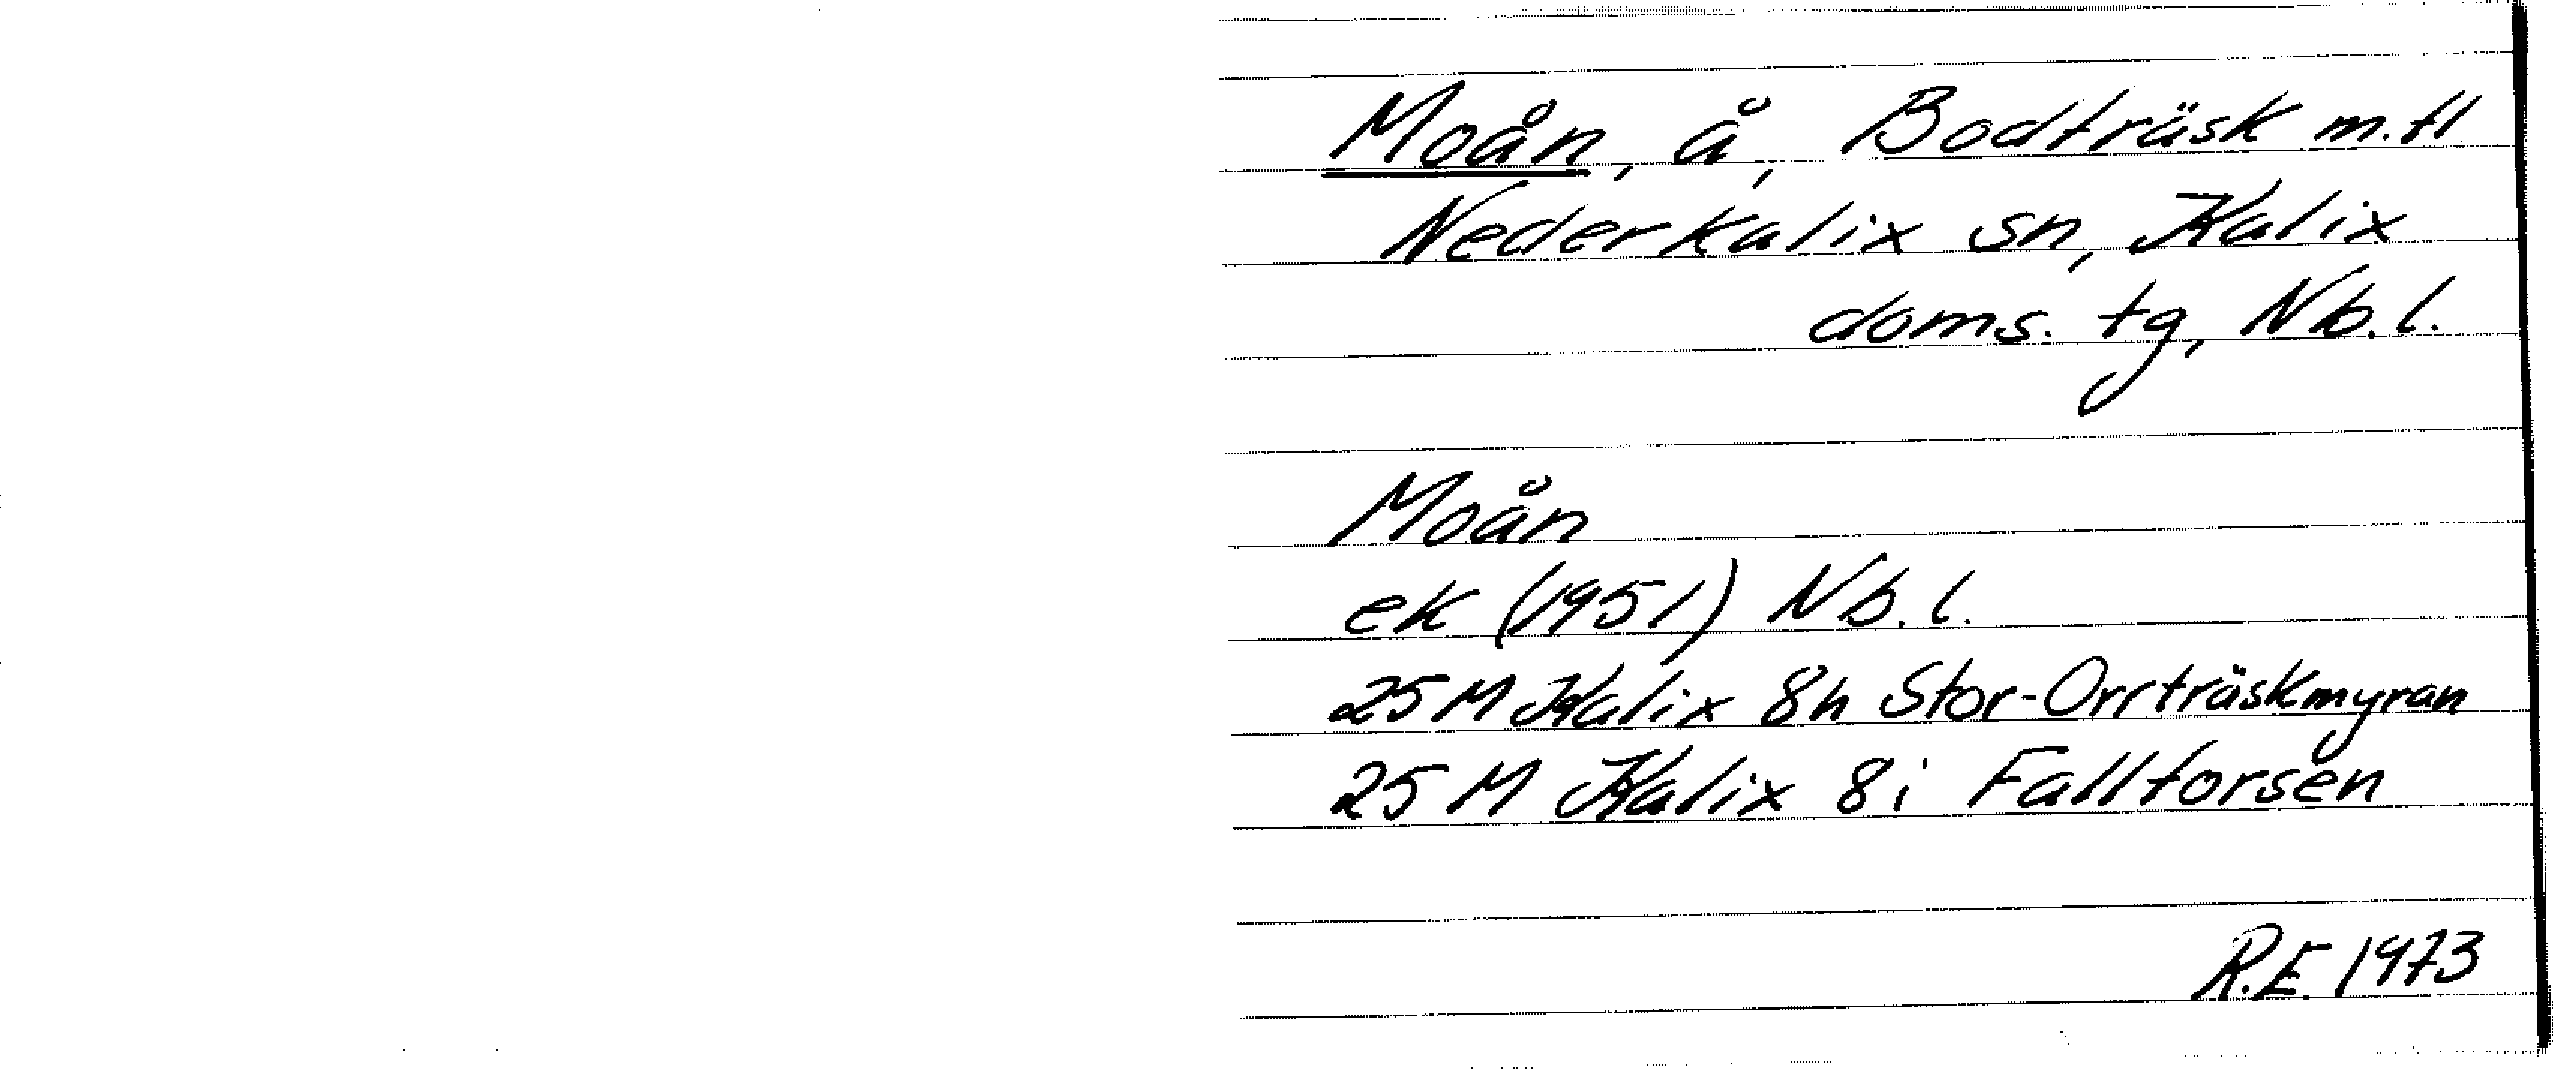 Moån, å, Bodträsk m.fl
Nederkalix sn, Kalix
doms. tg, Nb.l.
Moån
ek (1951) Nb.l.
25 M Kalix 8h Stor-Orrträskmyran
25 M Kalix 8i Fallforsen
R.E. 1973